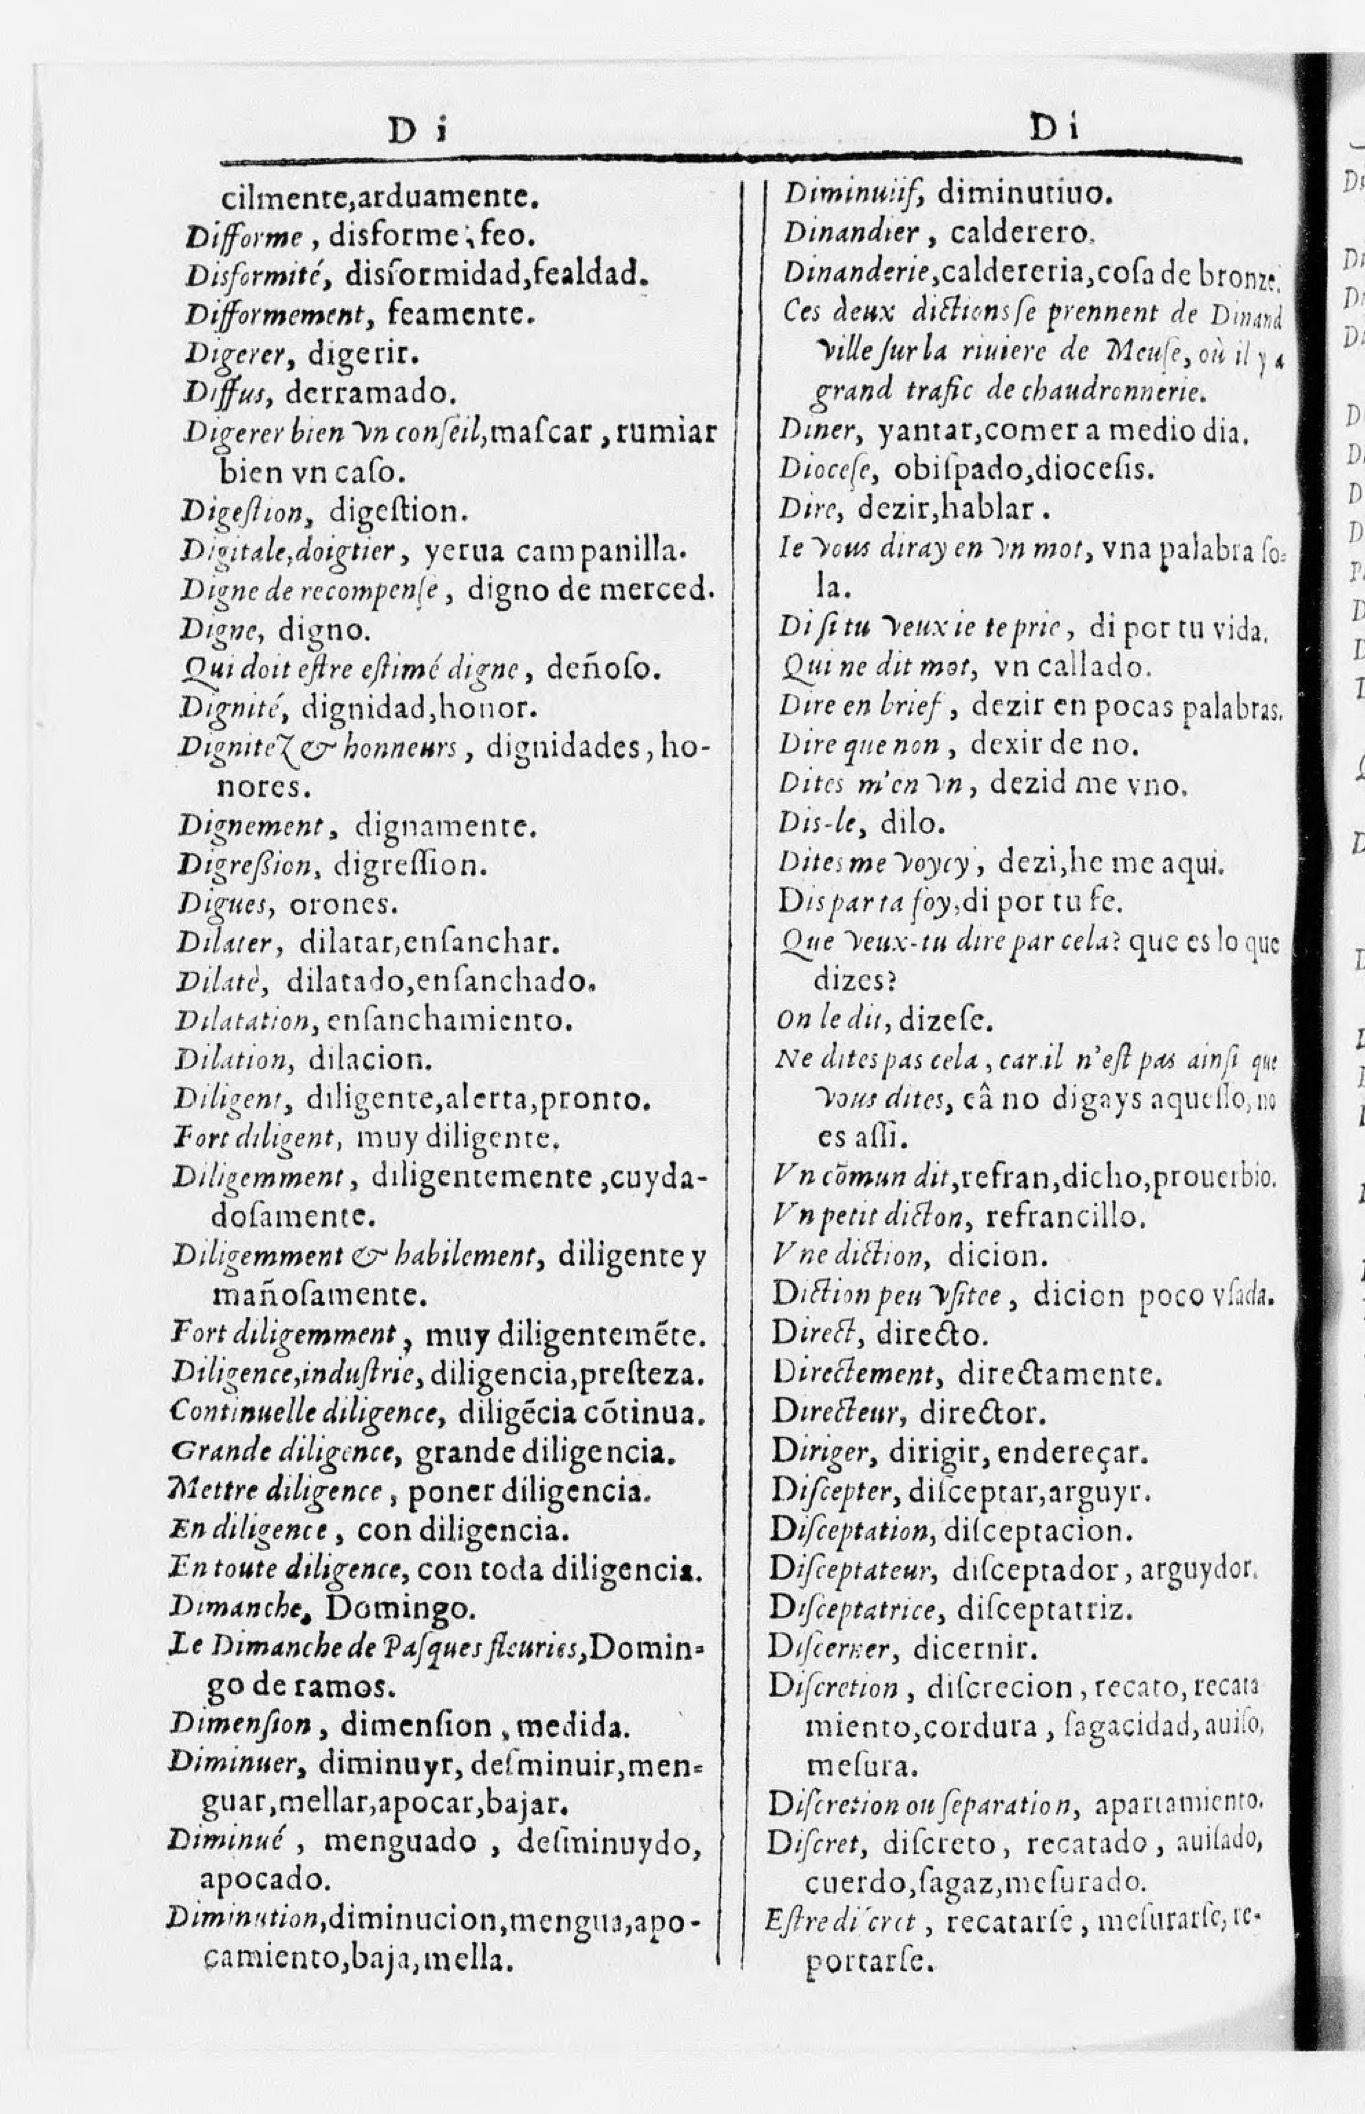 D i
cilmente,arduamente.
Difforme , disforme , feo.
Disformité, disformidad,fealdad.
Difformement, feamente.
Digerer, digerir.
Diffus, derramado.
Digerer bien vn conſeil,maſcar , rumiar
bien vn caſo.
Digeſtion, digeſtion.
Digitale,doigtier, yerua campanilla.
Digne de recompenſe , digno de merced.
Digne, digno.
Qui doit eſtre eſtimé digne , deñoſo.
Dignité, dignidad,honor.
Dignitez & honneurs , dignidades , ho-
nores.
Dignement, dignamente.
Digreßion, digreſſion.
Digues, orones.
Dilater, dilatar,enſanchar.
Dilatè, dilatado,enſanchado.
Dilatation, enſanchamiento.
Dilation, dilacion.
Diligent, diligente,alerta,pronto.
Fort diligent, muy diligente.
Diligemment, diligentemente ,cuyda-
doſamente.
Diligemment & habilement, diligente y
mañoſamente.
Fort diligemment, muy diligentemẽte.
Diligence,induſtrie, diligencia,preſteza.
Continuelle diligence, diligẽcia cõtinua.
Grande diligence, grande diligencia.
Mettre diligence , poner diligencia.
En diligence , con diligencia.
En toute diligence, con toda diligencia.
Dimanche, Domingo.
Le Dimanche de Paſques fleuries,Domin-
go de ramos.
Dimenſion , dimenſion , medida.
Diminuer, diminuyr, deſminuir,men-
guar,mellar,apocar,bajar.
Diminué , menguado , deſminuydo,
apocado.
Diminution,diminucion,mengua,apo-
çamiento,baja,mella.
D i
Diminutif, diminutiuo.
Dinandier , calderero.
Dinanderie,caldereria,coſa de bronze.
Ces deux dictions ſe prennent de Dinand
ville ſur la riuiere de Meuſe, où il y a
grand trafic de chaudronnerie.
Diner, yantar,comer a medio dia.
Dioceſe, obiſpado,dioceſis.
Dire, dezir,hablar .
Ie vous diray en vn mot, vna palabra ſo-
la.
Di ſi tu veux ie te prie , di por tu vida.
Qui ne dit mot, vn callado.
Dire en brief , dezir en pocas palabras.
Dire que non , dexir de no.
Dites m'en vn , dezid me vno.
Dis-le, dilo.
Dites me voycy , dezi,he me aqui.
Dis par ta foy,di por tu fe.
Que veux-tu dire par cela? que es lo que
dizes?
On le dit, dizeſe.
Ne dites pas cela , car il n'eſt pas ainſi que
vous dites, câ no digays aquello, no
es aſſi.
Vn cõmun dit,refran,dicho,prouerbio.
Vn petit dicton, refrancillo.
Vne diction, dicion.
Diction peu vſitee , dicion poco vſada.
Direct, directo.
Directement, directamente.
Directeur, director.
Diriger, dirigir, endereçar.
Diſcepter, diſceptar,arguyr.
Diſceptation, diſceptacion.
Diſceptateur, diſceptador , arguydor.
Diſceptatrice, diſceptatriz.
Diſcerner, dicernir.
Diſcretion , diſcrecion , recato, recata
miento,cordura , ſagacidad, auiſo,
meſura.
Diſcretion ou ſeparation, apartamiento.
Diſcret, diſcreto, recatado , auiſado,
cuerdo,ſagaz,meſurado.
Eſtre diſcret , recatarſe , meſurarſe, re-
portarſe.